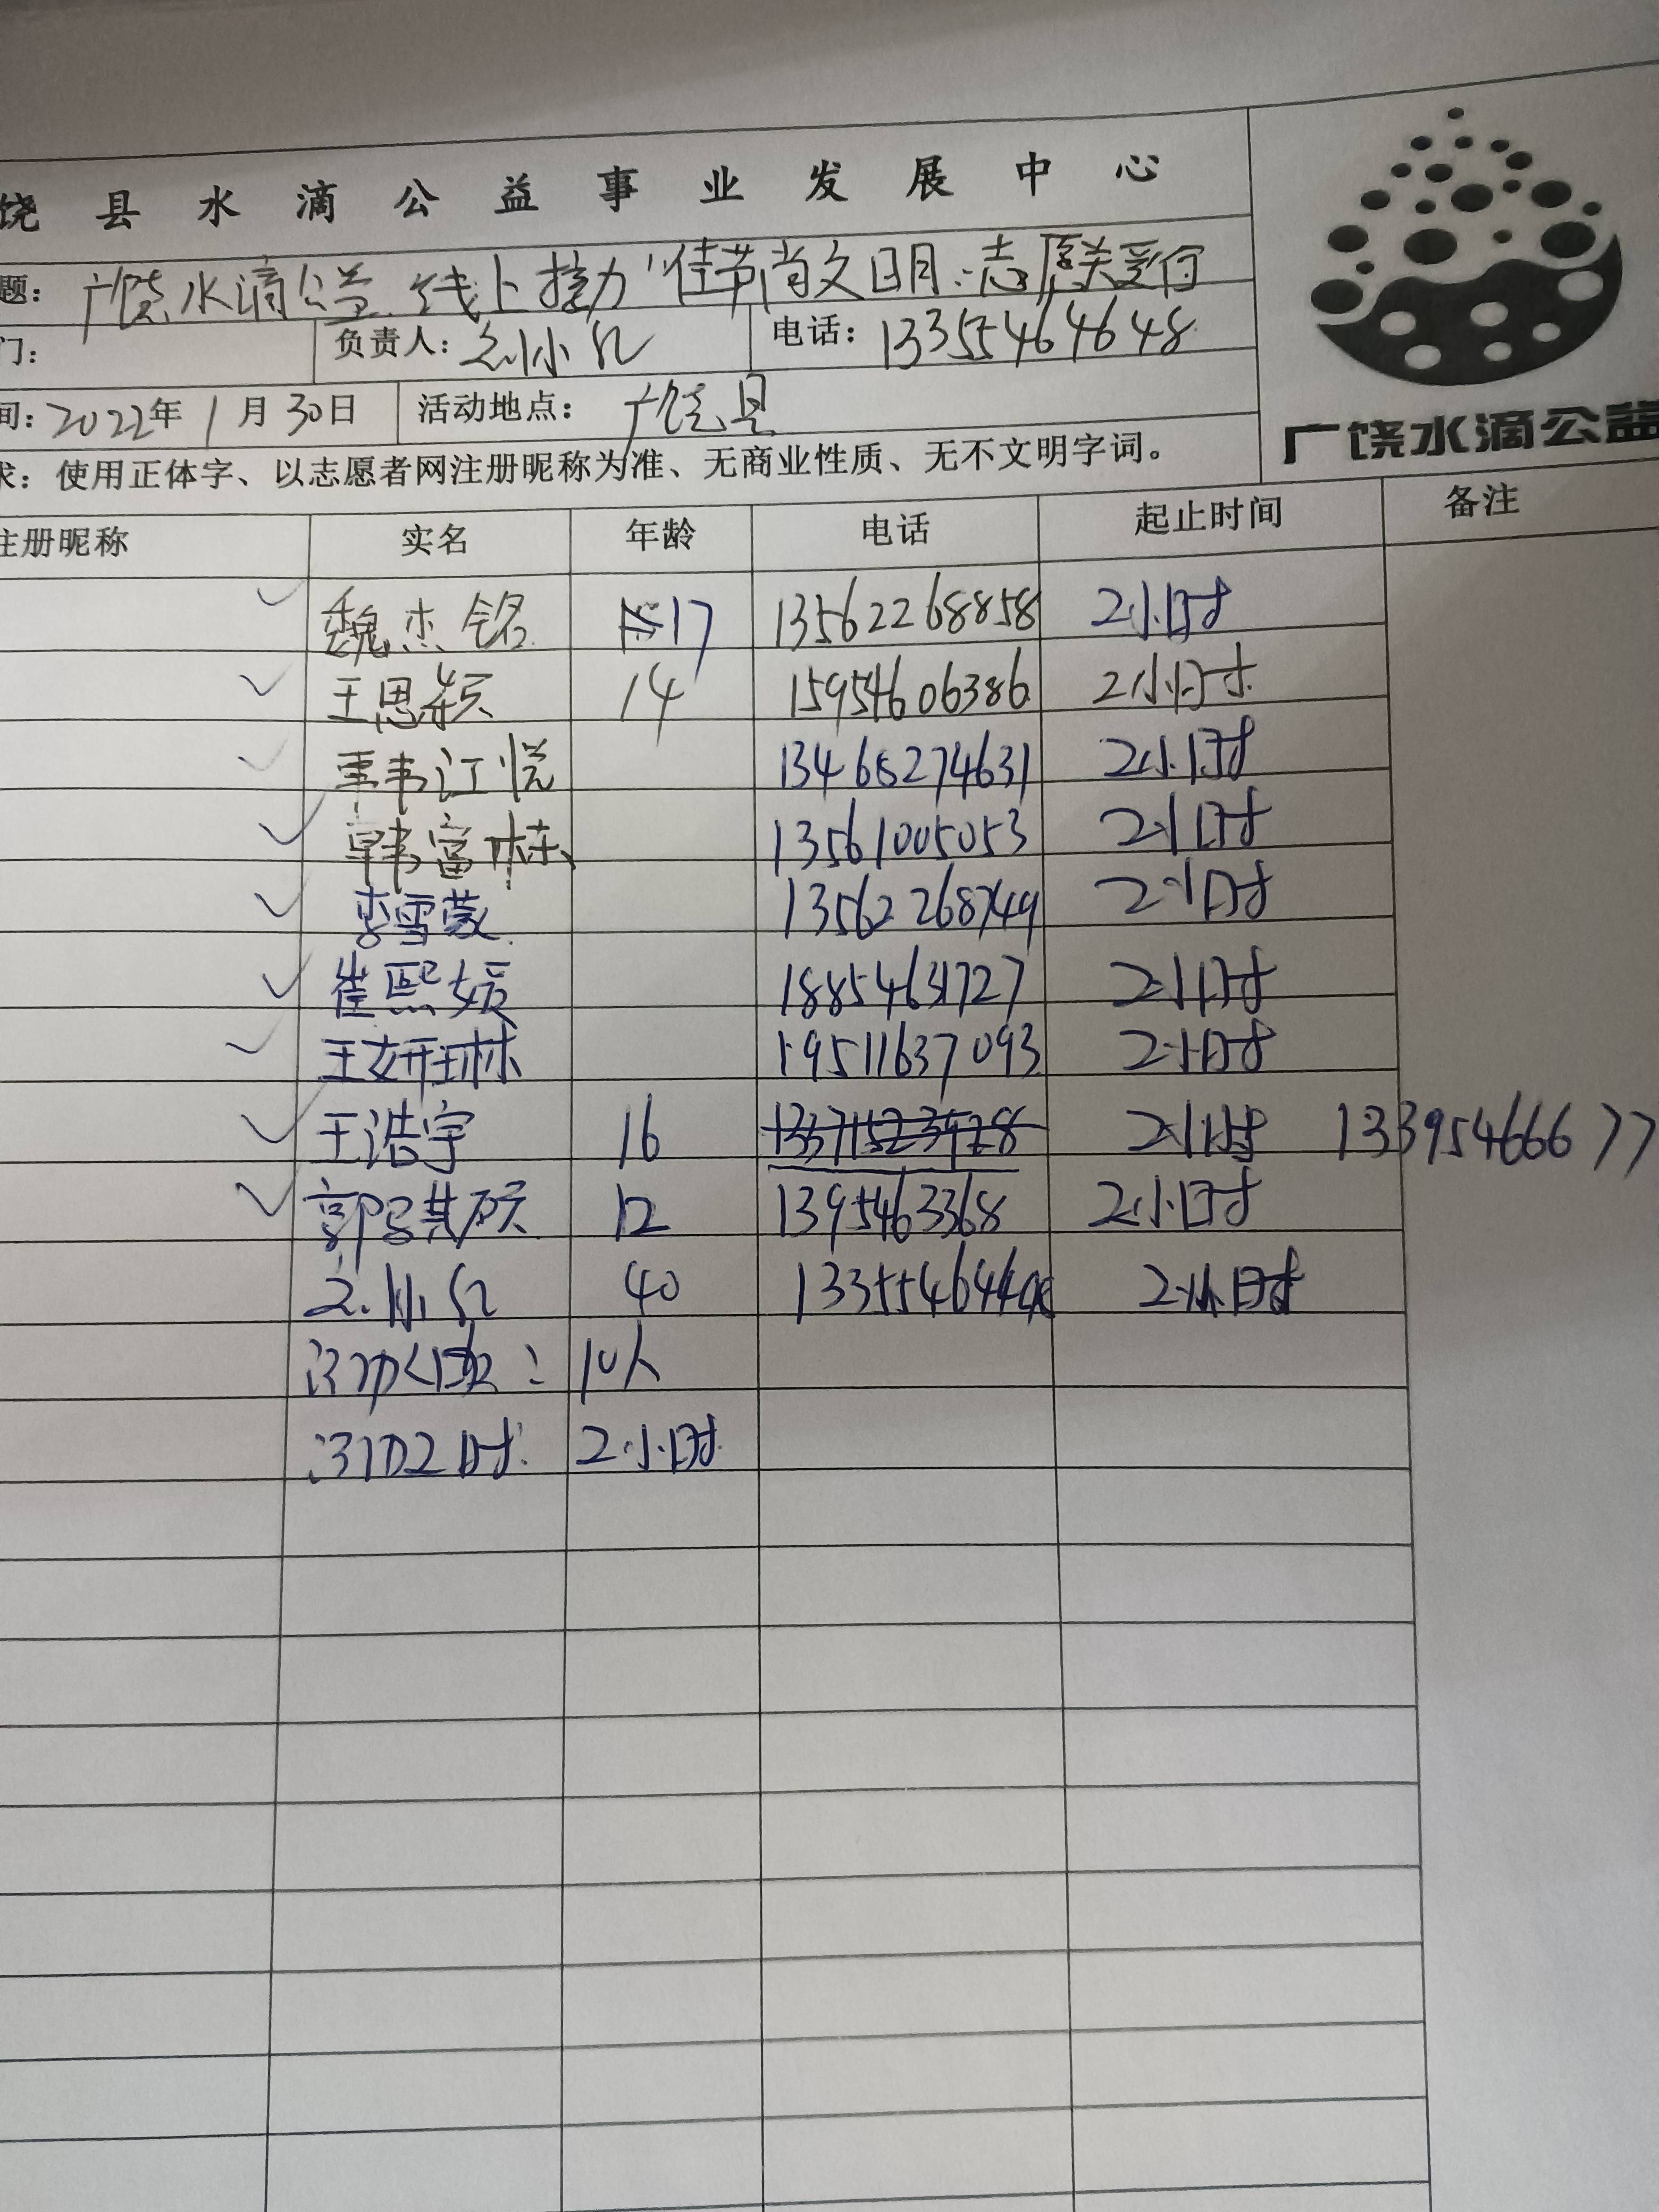 饶县水滴公益事业发展中心
题: 广饶水滴公益线上接力"佳节尚文明.志愿关爱行
门: 负责人: 电话: 13355464648
间: 2022年1月30日 活动地点: 广饶县
求: 使用正体字、以志愿者网注册昵称为准、无商业性质、无不文明字词。
广饶水滴公益
注册昵称 实名 年龄 电话 起止时间 备注
魏杰铭 17 13562268858 2小时
王思颖 14 15954606386 2小时
韩江悦 2小时
韩富栋 13561005053 2小时
李雪蒙 2小时
崔熙媛 2小时
王妍琳 19511637093 2小时
王浩宇 16 13371523928 2小时 13395466677
郭其硕 12 1395463368 2小时
40 2小时
10人
2小时